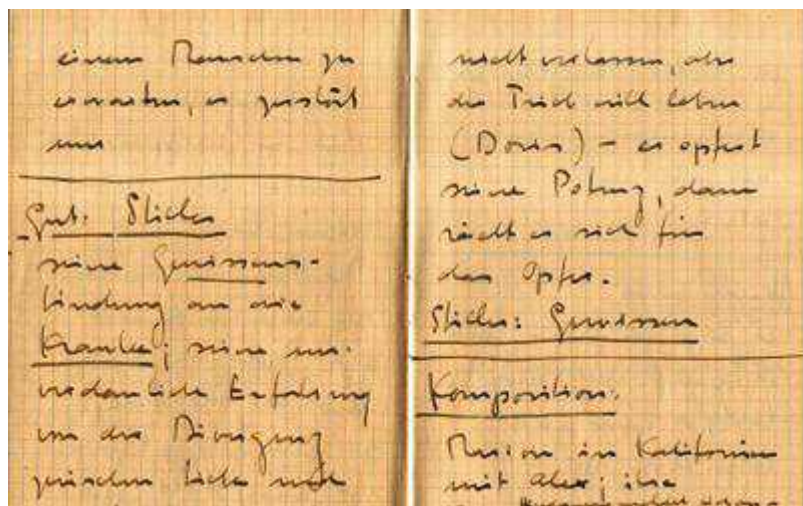 einem Menschen zu
erwarten, es zerstört
uns
Gut: Stiller
seine Gewissens-
bindung an die
Kranke; seine un-
verdauliche Erfahrung
um die
zwischen Liebe und
nicht verlassen, aber
der Trieb will leben
(Doris) – er opfert
seine Potenz, dann
rächt er sich für
das Opfer.
Stiller: Gewissen
Komposition:
in Kalifornien
mit Alex; ihre